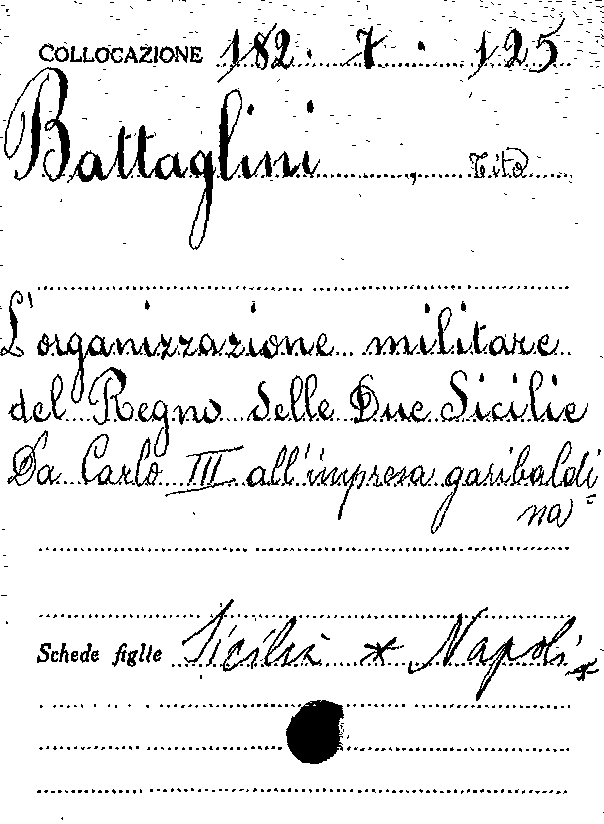 COLLOCAZIONE 182. 7. 125
Battaglini, Tito
L'organizzazione militare
del Regno delle Due Sicilie
Da Carlo III all'impresa garibaldi=
na
Schede figlie Sicilia * Napoli *